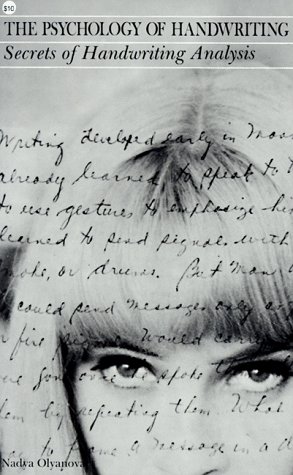 $10
THE PSYCHOLOGY OF HANDWRITING
Secrets of Handwriting Analysis
Writing developed early in
already learned to speak to
to use gestures to emphasize
learned to send signals with
or drums. But man
could send messages only
or fire Would
over spoke
by repeating them. What
a message in a
Nadya Olyanova